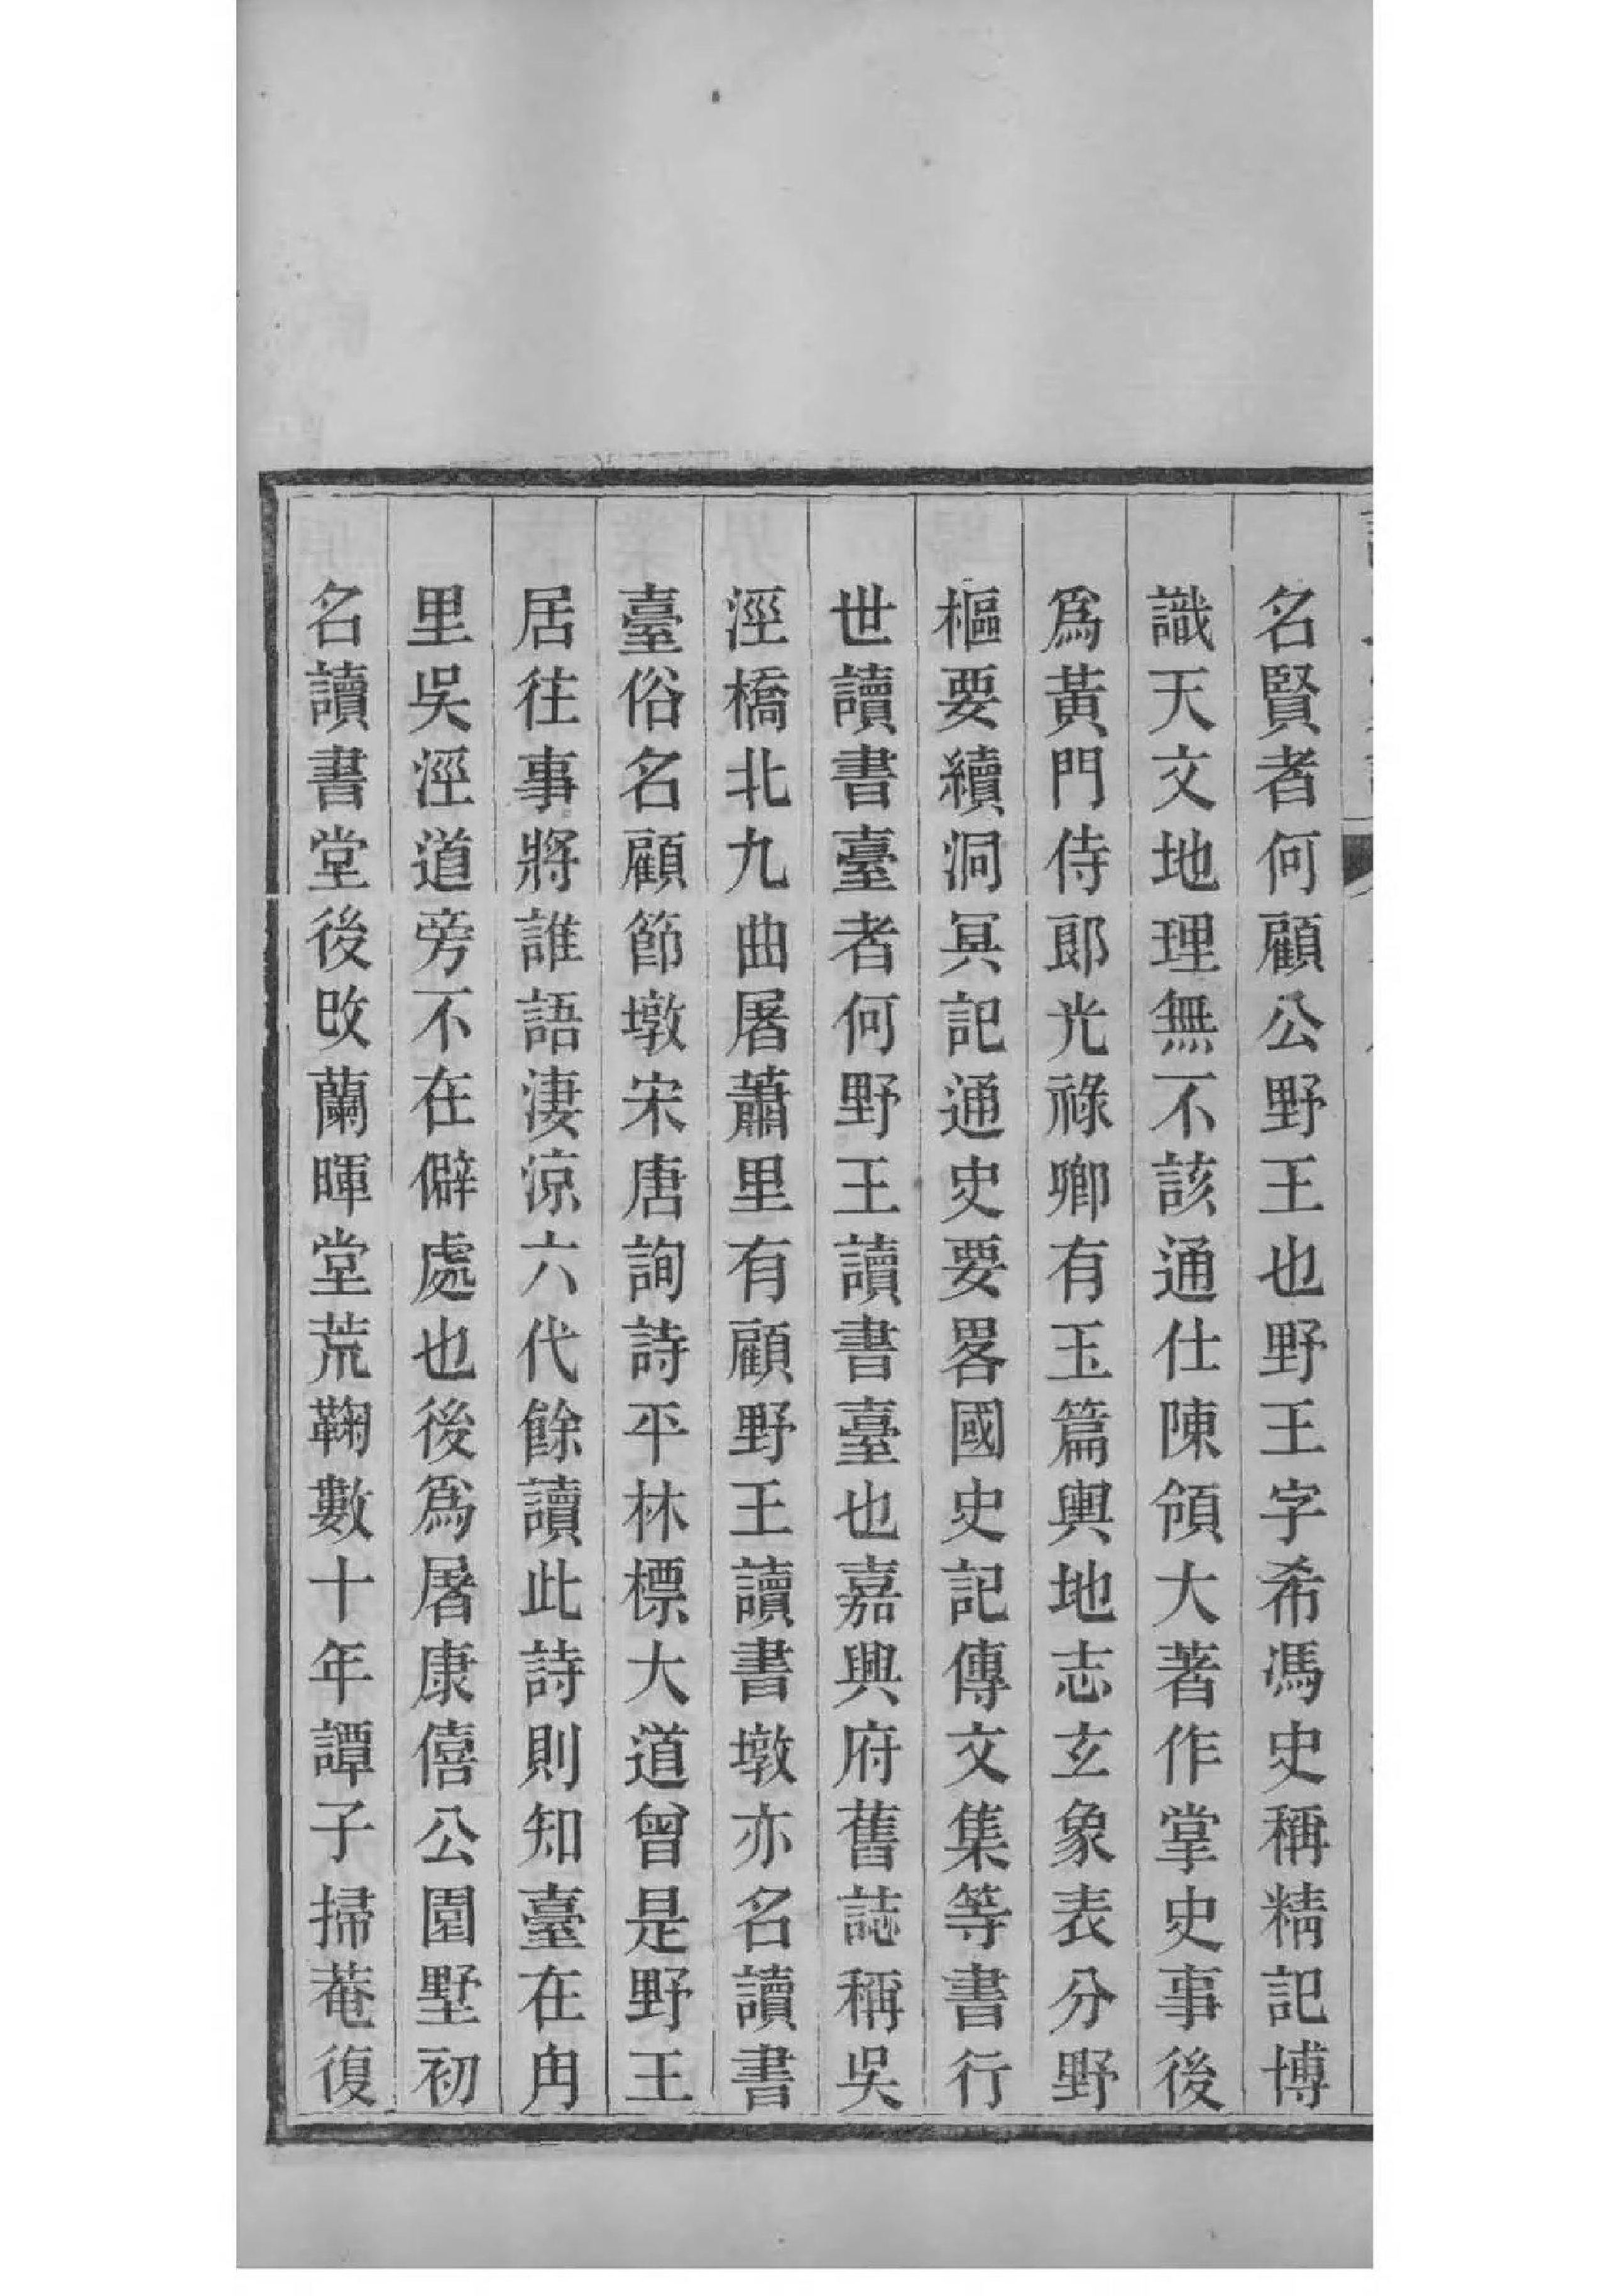 名賢者何顧公野王也野王字希馮史稱精記博
識天文地理無不該通仕陳領大著作掌史事後
爲黃門侍郎光祿卿有玉篇輿地志玄象表分野
樞要續洞冥記通史要畧國史記傳文集等書行
世讀書臺者何野王讀書臺也嘉興府舊誌稱吳
涇橋北九曲屠蕭里有顧野王讀書墩亦名讀書
臺俗名顧節墩宋唐詢詩平林標大道曾是野王
居往事將誰語淒涼六代餘讀此詩則知臺在冉
里吳涇道旁不在僻處也後爲屠康僖公園墅初
名讀書堂後改蘭暉堂荒鞠數十年譚子掃菴復